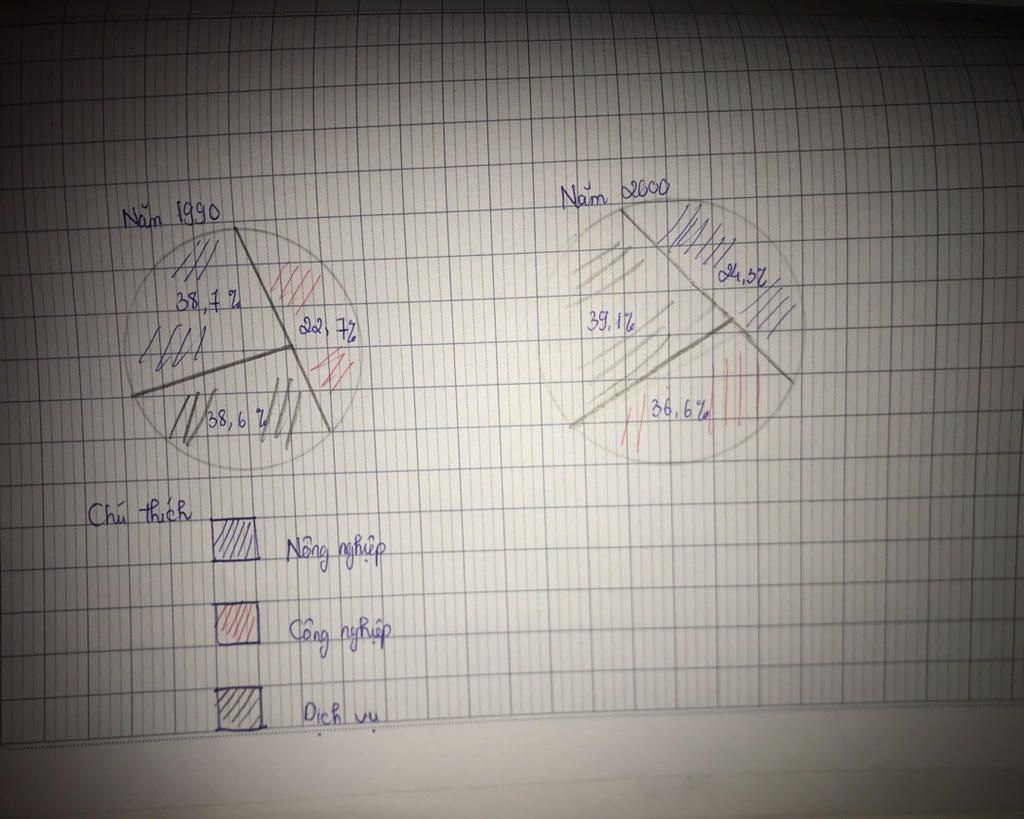 Năm 1990
38,7%
22,7%
38,6%
Năm 2000
24,3%
39,1%
36,6%
Chú thích
Nông nghiệp
Công nghiệp
Dịch vụ